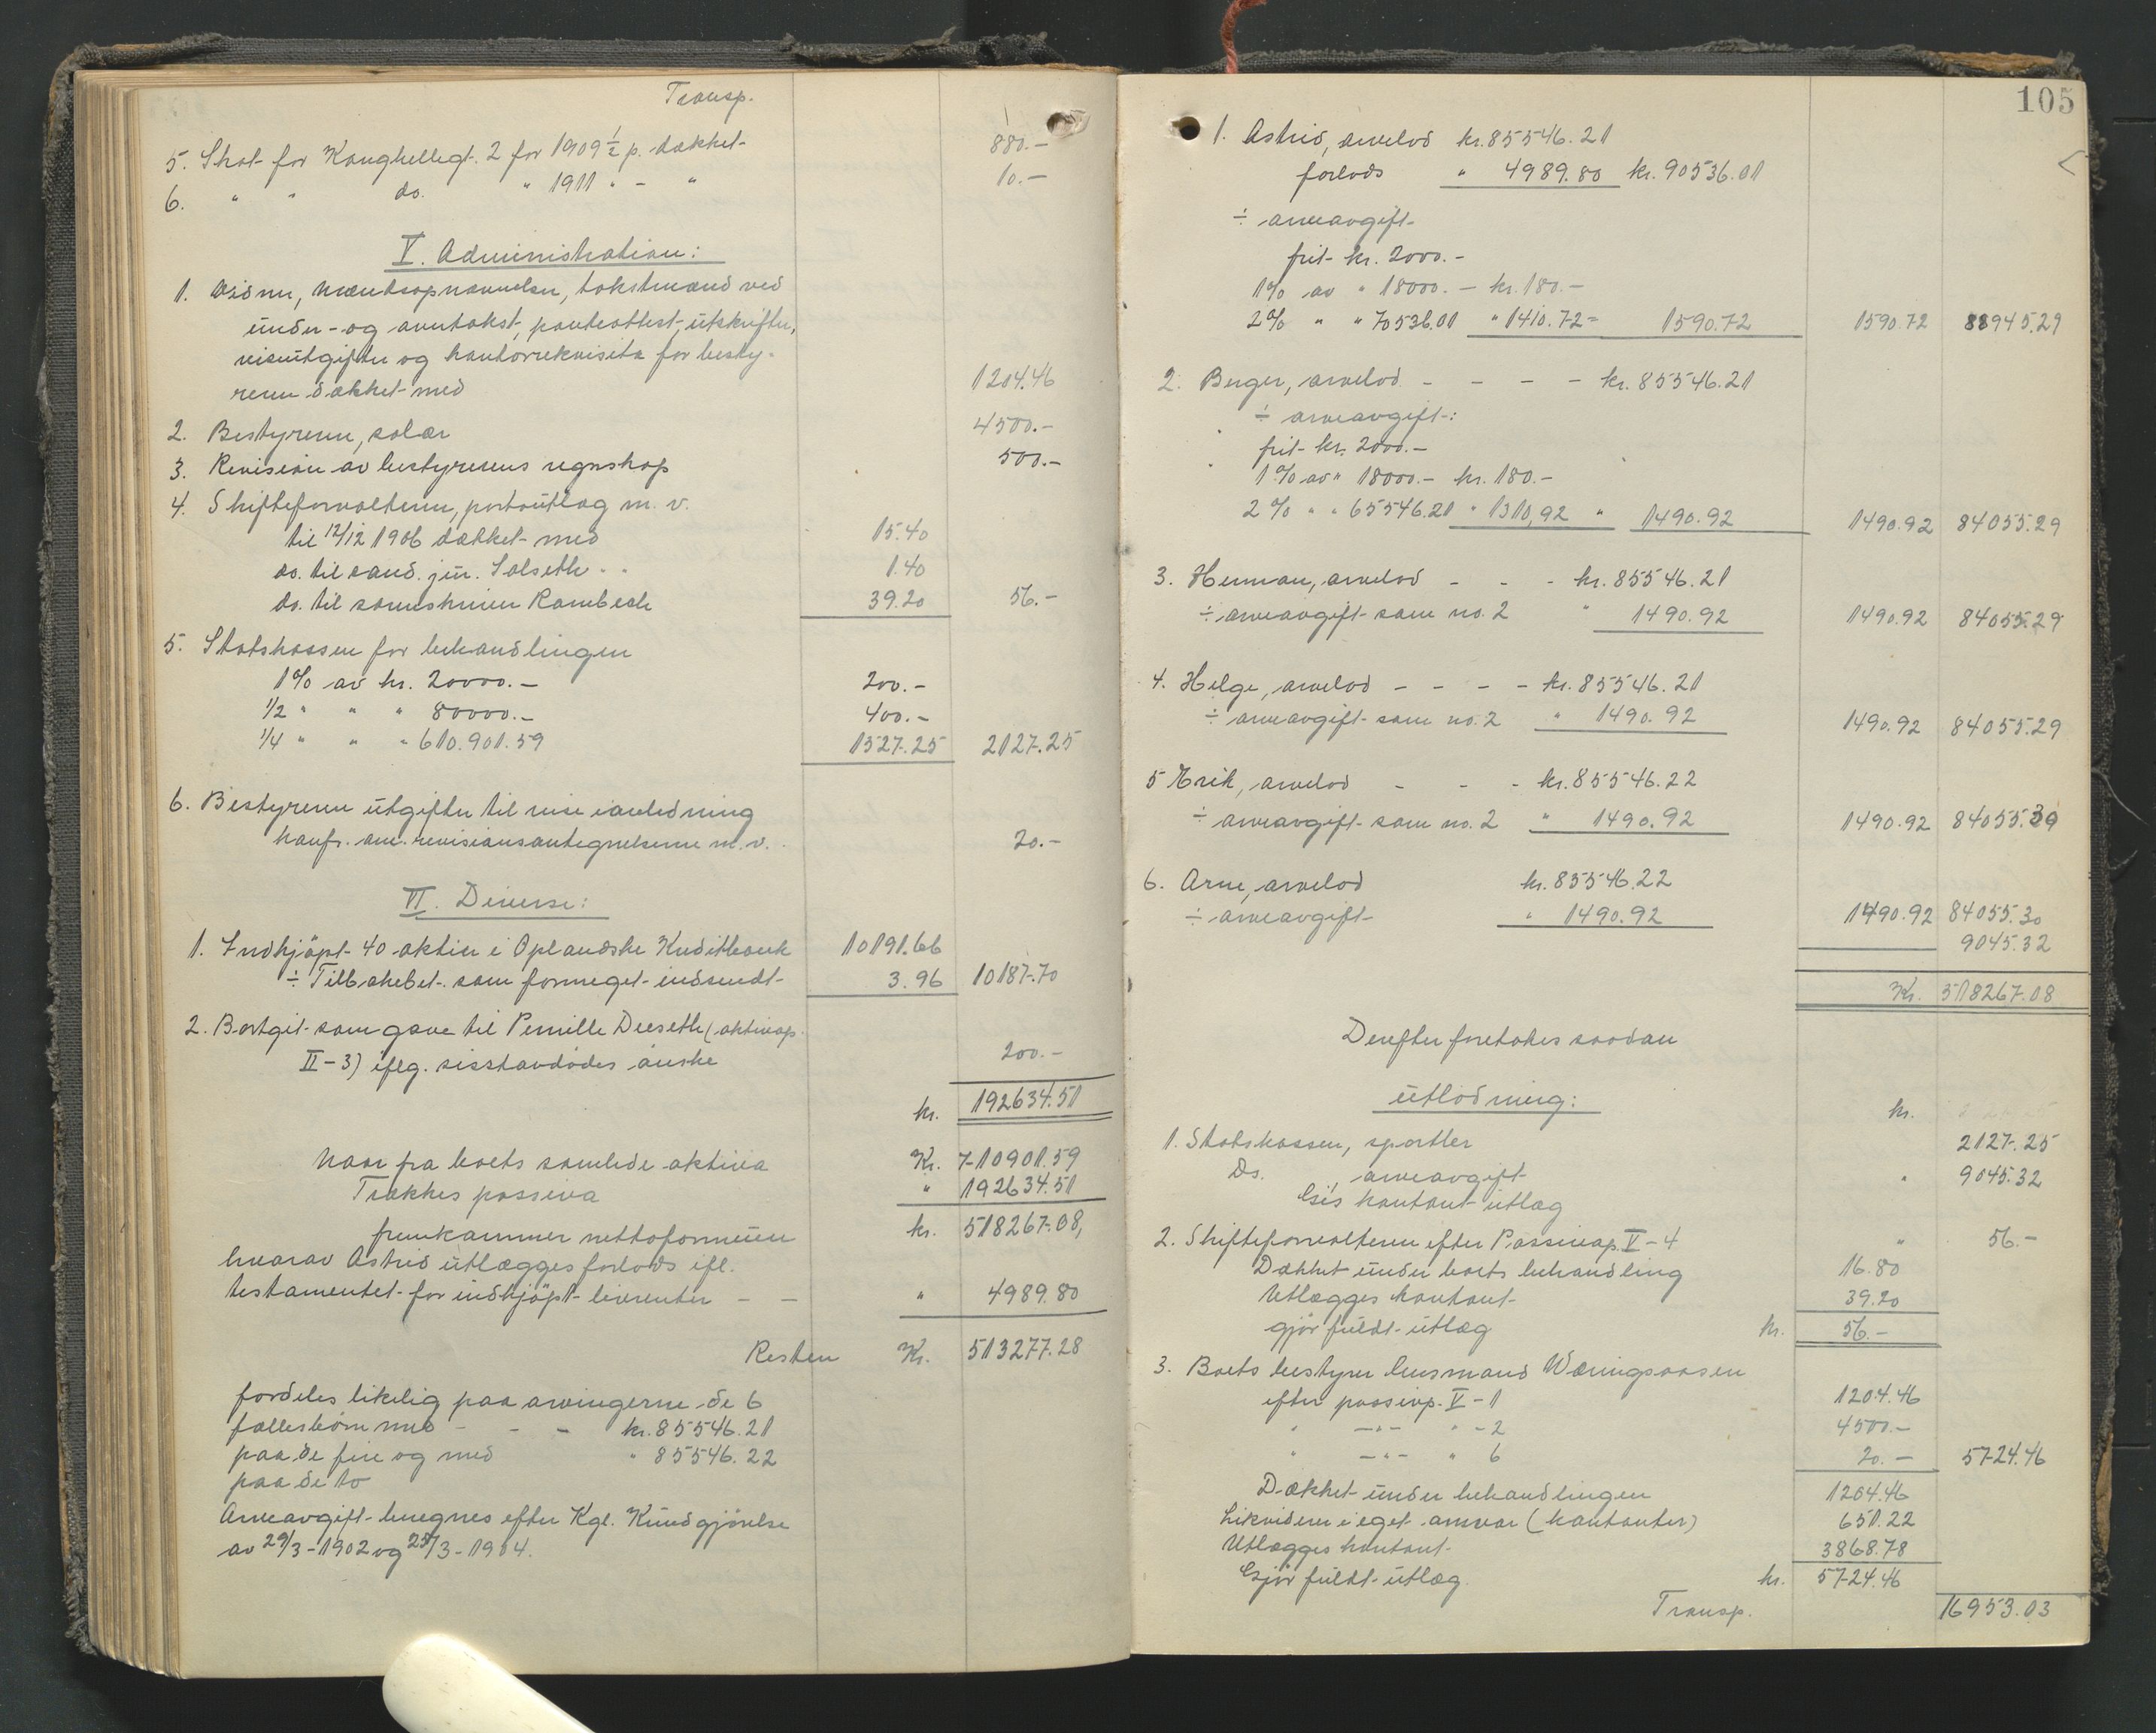 Transp.
5. Skat for Konghellegt. 2 for 1909 1/2 p. dækket 880.-
6. " " do. " 1911 " - " 10.-
V. Administration:
1. Eidnu, mændsopnævnelser, takstmænd ved
under- og avertakst, panteattest, utskrifter,
reiseutgifter og kontorrekvisita for besty-
reren dækket med 1204.46
2. Bestyreren, salær 4500.-
3. Revision av bestyrerens regnskap 500.-
4. Skifteforvalteren, portoutlæg m. v.
til 12/12 1906 dækket med 15.40
do. til cand. jur. Solseth " " 1.40
do. til sorenskriver Rambech 39.20 56.-
5. Statskassen for behandlingen
1% av kr. 20000.- 200.-
1/2 " " " 80000.- 400.-
1/4 " " " 610.901.59 1527.25 2127.25
6. Bestyreren utgifter til reise i anledning
konfr. an. revisionsantegnelserne m. v. 20.-
VI. Diverse:
1. Indkjøpt 40 aktier i Oplandske Kreditbank 10191.66
÷ Tilbakebet. som formeget indsendt 3.96 10187.70
2. Bortgit som gave til Pernille Deeseth (aktivap.
II-3) iflg. sisstavdødes ønske 200.-
kr. 192634.51
Naar fra boets samlede aktiva Kr. 710901.59
Trækkes passiva " 192634.51
fremkommer nettoformuen kr. 518267.08,
hvorav Astrid utlægges forlods ifl.
testamentet for indkjøpt livrenter - - " 4989.80
Resten Kr. 513277.28
fordeles likelig paa arvingerne de 6
fællesbørn med - - - kr. 85546.21
paa de fire og med " 85546.22
paa de to
Arveavgift beregnes efter Kgl. Kundgjørelse
av 29/3-1902 og 23/3-1904.
105
1. Astrid, arvelod kr. 85546.21
forlods " 4989.80 kr. 90536.01
÷ arveavgift
frit kr. 2000.-
1% av " 18000.- kr. 180.-
2% " " 70536.01 " 1410.72 = 1590.72 1590.72 88945.29
2. Birger, arvelod - - - - kr. 85546.21
÷ arveavgift:
frit kr. 2000.-
1% av " 18000.- kr. 180.-
2% " " 65546.21 " 1310,92 " 1490.92 1490.92 84055.29
3. Herman, arvelod - - - kr. 85546.21
÷ arveavgift som no. 2 " 1490.92 1490.92 84055.29
4. Helge, arvelod - - - - kr. 85546.21
÷ arveavgift som no. 2 " 1490.92 1490.92 84055.29
5 Erik, arvelod - - - kr. 85546.22
÷ arveavgift som no. 2 " 1490.92 1490.92 84055.30
6. Arne, arvelod kr. 85546.22
÷ arveavgift " 1490.92 1490.92 84055.30
9045.32
Kr. 518267.08
Derefter foretokes saadan
utlodning:
kr.
1. Statskassen, sportler 2127.25
Do. arveavgift " 9045.32
Gis kontant utlæg
2. Skifteforvalteren efter Passivap. V-4 " 56.-
Dækket under boets behandling 16.80
Utlægges kontant 39.20
gjør fuldt utlæg kr. 56.-
3. Boets bestyrer lensmand Wæringsaasen
efter passivp. V-1 1204.46
" -"- " -2 4500.-
" -"- " 6 20.- 5724.46
Dækket under behandlingen 1204.46
Likvideres i eget ansvar (kontanter) 651.22
Utlægges kontant 3868.78
Gjør fuldt utlæg. kr. 5724.46
Transp. 16953.03